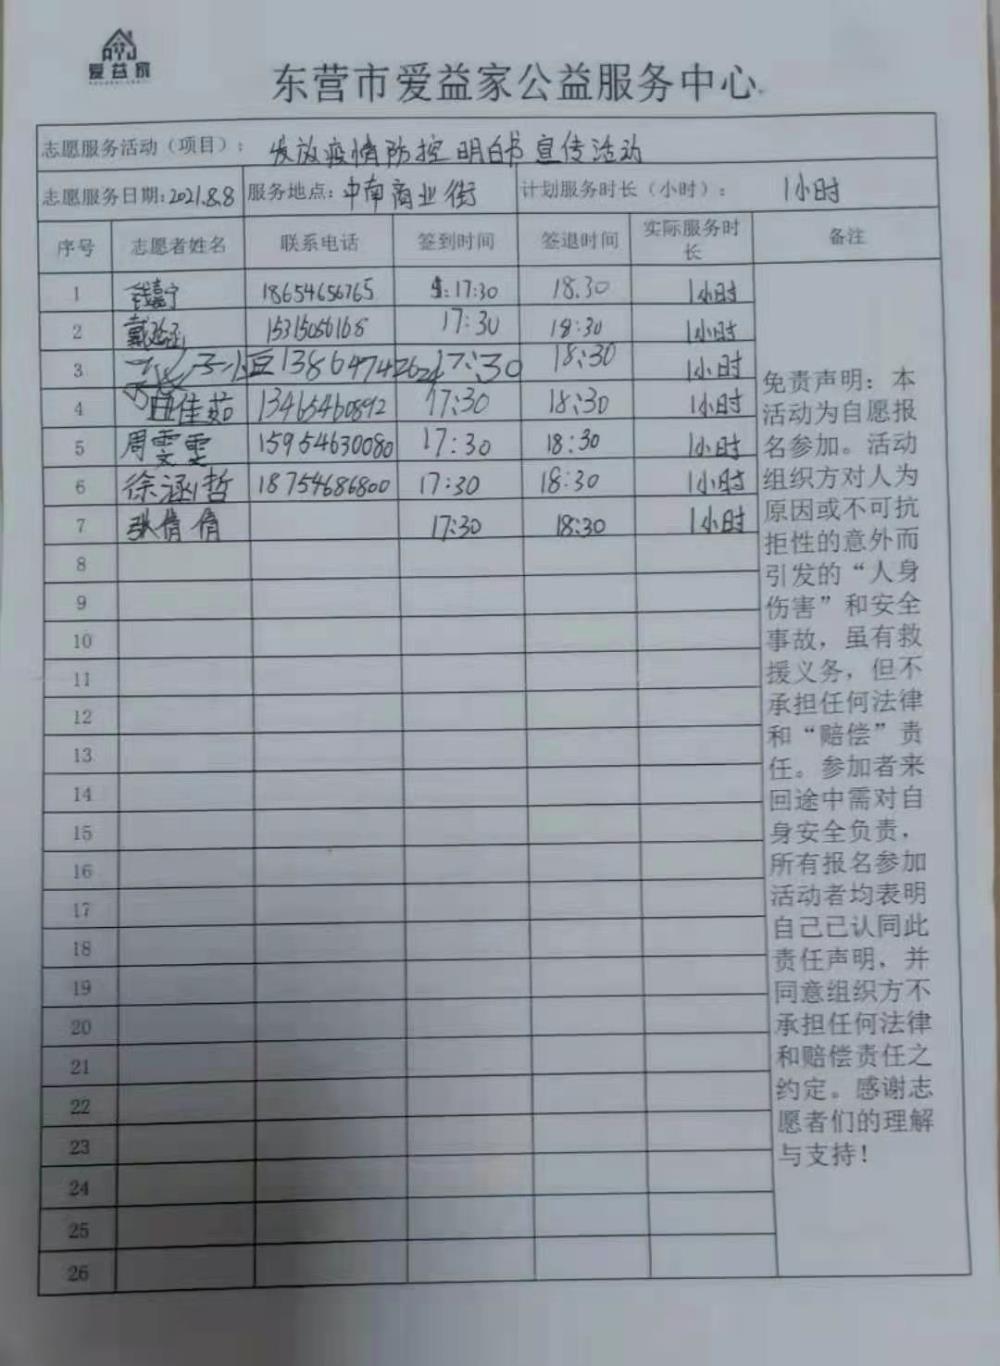 爱益家
东营市爱益家公益服务中心
志愿服务活动(项目): 发放疫情防控明白书宣传活动
志愿服务日期:2021.8.8 服务地点:中南商业街 计划服务时长(小时): 1小时
序号 志愿者姓名 联系电话 签到时间 签退时间 实际服务时长 备注
1 18654656765 17:30 18.30 1小时
2 15315056168 17:30 18:30 1小时
3 13864742624 17:30 18:30 1小时
4 佳茹 13465460892 17:30 18:30 1小时
5 周雯雯 15954630080 17:30 18:30 1小时
6 徐涵哲 18754686800 17:30 18:30 1小时
7 张倩倩 17:30 18:30 1小时
8
9
10
11
12
13
14
15
16
17
18
19
20
21
22
23
24
25
26
免责声明:本
活动为自愿报
名参加。活动
组织方对人为
原因或不可抗
拒性的意外而
引发的“人身
伤害”和安全
事故,虽有救
援义务,但不
承担任何法律
和“赔偿”责
任。参加者来
回途中需对自
身安全负责,
所有报名参加
活动者均表明
自己已认同此
责任声明,并
同意组织方不
承担任何法律
和赔偿责任之
约定。感谢志
愿者们的理解
与支持!